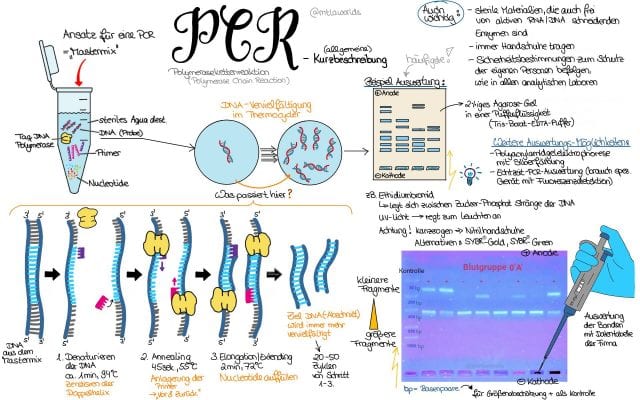 Ansatz für eine PCR
= "Mastermix"
PCR
@mtlaworlds
(allgemeine)
- Kurzbeschreibung
Polymerasekettenreaktion
(Polymerase Chain Reaction)
Auch wichtig:
- sterile Materialien, die auch frei
von aktiven RNA/DNA schneidenden
Enzymen sind
- immer Handschuhe tragen
- Sicherheitsbestimmungen zum Schutz
der eigenen Personen befolgen,
wie in allen analytischen Laboren
steriles Aqua dest.
DNA (Probe)
Taq DNA
Polymerase
Primer
Nucleotide
DNA-Vervielfältigung
im Thermocycler
Was passiert hier?
häufigste!
Beispiel Auswertung:
Anode
Kathode
2%iges Agarose-Gel
in einer Pufferflüssigkeit
(Tris-Borat-EDTA-Puffer)
Weitere Auswertungs-Möglichkeiten:
- Polyacrylamidgelelektrophorese
mit Silberfärbung
- Echtzeit-PCR-Auswertung (brauch spez.
Gerät mit Fluoreszenzdetektion)
zB. Ethidiumbromid
↳ legt sich zwischen Zucker-Phosphat Stränge der DNA
UV-Licht → regt zum Leuchten an
Achtung! kanzerogen → Nitrilhandschuhe
Alternativen: SYBR® Gold, SYBR® Green
3' 5' 3' 5' 3' 5' 3' 5'
DNA
aus dem
Mastermix
1. Denaturieren
der DNA
ca. 1min, 94°C
2. Annealing
45sek, 55°C
Anlagerung der
Primer
→ "Vor & Zurück"
3. Elongation/Extending
2min, 72°C
Nucleotide auffüllen
Ziel DNA(-Abschnitt)
wird immer mehr
vervielfältigt
20-50
Zyklen
von Schritt
1-3.
Kontrolle
Blutgruppe 0 A
Anode
kleinere
Fragmente
größere
Fragmente
Kathode
Auswertung
der Banden
mit Datentabelle
der Firma
bp = Basenpaare
für Größenabschätzung + als Kontrolle